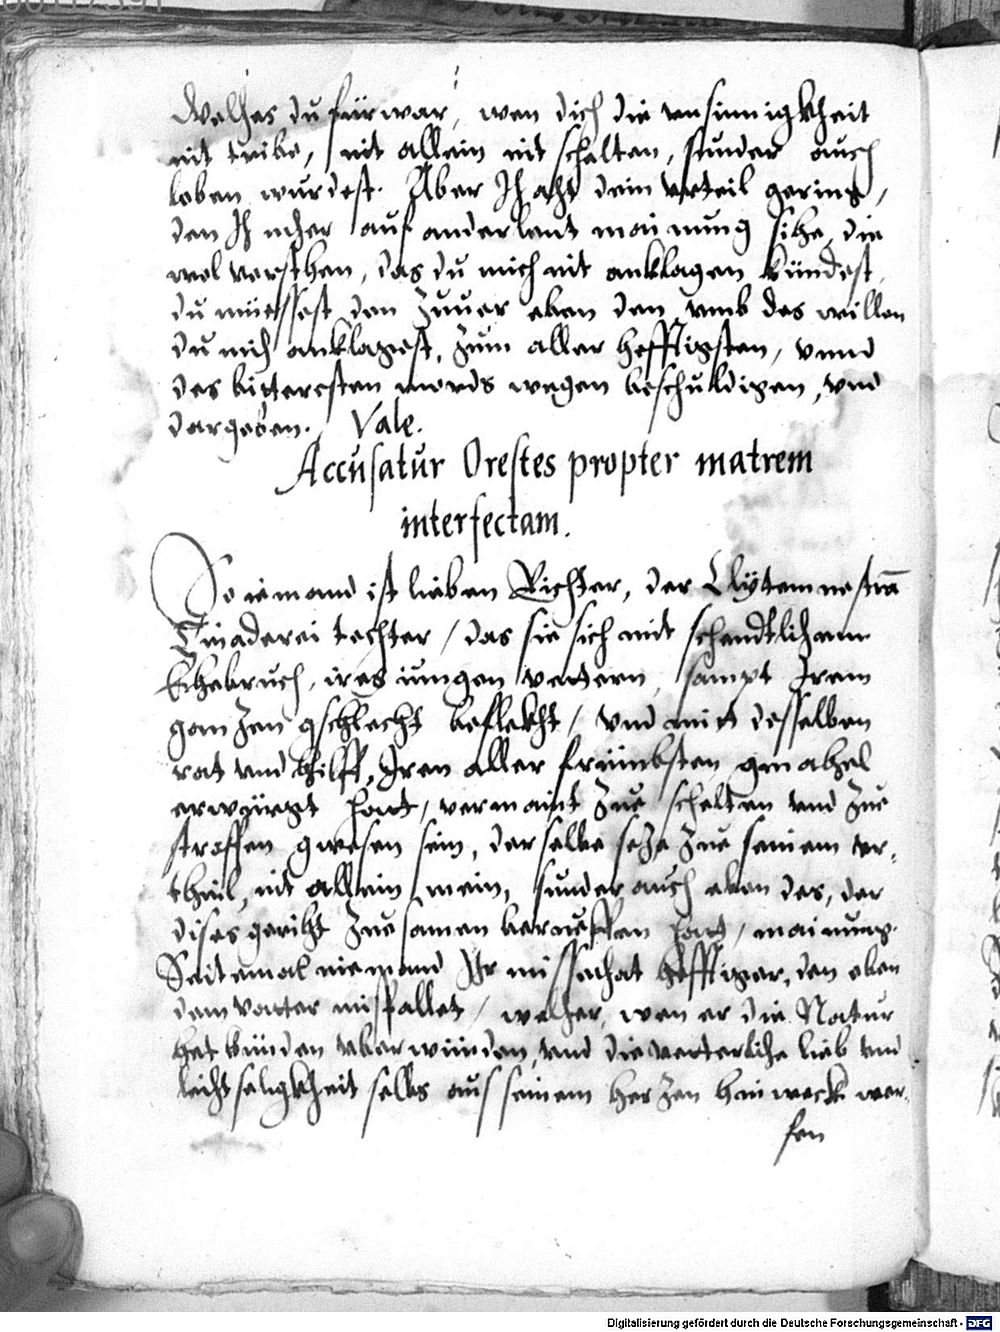 Welhes du fürwar, wen dich die unsinnigkheit
nit tribe, nit allein nit schelten, sunder auch
loben wurdest. Aber Ich acht dein urteil gering,
den Ich mher auf ander leut mainung sihe, die
wol versthen, das du mich nit anklagen kündest,
du müessest den zuuor eben den, umb des willen
du mich anklagest, zum aller hefftigsten, vnnd
des bitteresten mords wegen beschuldigen, vnd
dargeben. Vale.
Accusatur Orestes propter matrem
interfectam.
So iemand ist lieben Richter, der Clytemnestram
Tindarei tochter, das sie sich mit schendtlichem
Ehebruch, ires iungen vettern, sampt Irem
ganzen gschlecht beflekht, vnd mit desselben
rat vnd hilff, Iren aller frümbsten gmahel
erwürgt hat, vermaint zue schelten vnd zue
straffen gwesen sein, derselbe seze zue seinem vr-
theil, nit allein mein, sunder auch eben des, der
dises gericht zuesamen berueffen hat, mainung.
Seitemal niemand Ihr missethat hefftiger, den eben
dem vatter missfallet, welher, wen er die Natur
het künden vberwünden, vnd die vetterliche lieb vnd
leichtseligkheit selbs aus seinem herzen hinweck wer-
fen
Digitalisierung gefördert durch die Deutsche Forschungsgemeinschaft - DFG